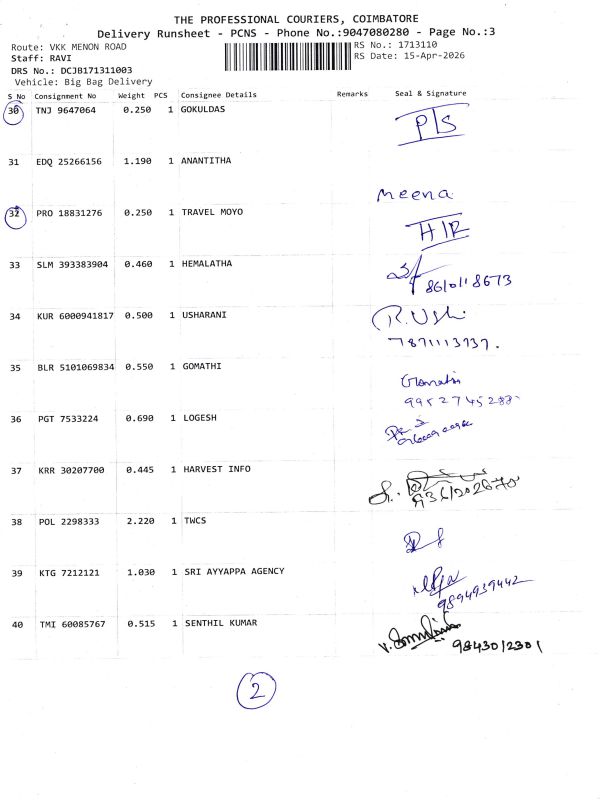 THE PROFESSIONAL COURIERS, COIMBATORE
Delivery Runsheet - PCNS - Phone No.:9047080280 - Page No.:3
Route: VKK MENON ROAD
RS No.: 1713110
Staff: RAVI
RS Date: 15-Apr-2026
DRS No.: DCJB171311003
Vehicle: Big Bag Delivery
S No Consignment No Weight PCS Consignee Details Remarks Seal & Signature
30 TNJ 9647064 0.250 1 GOKULDAS P/S
31 EDQ 25266156 1.190 1 ANANTITHA
Meena
32 PRO 18831276 0.250 1 TRAVEL MOYO
H/R
33 SLM 393383904 0.460 1 HEMALATHA
8610118673
34 KUR 6000941817 0.500 1 USHARANI R.Ushi
7871113737.
35 BLR 5101069834 0.550 1 GOMATHI
Gomathi
36 PGT 7533224 0.690 1 LOGESH
37 KRR 30207700 0.445 1 HARVEST INFO
38 POL 2298333 2.220 1 TWCS
39 KTG 7212121 1.030 1 SRI AYYAPPA AGENCY
9894939442
40 TMI 60085767 0.515 1 SENTHIL KUMAR
9843012301
2